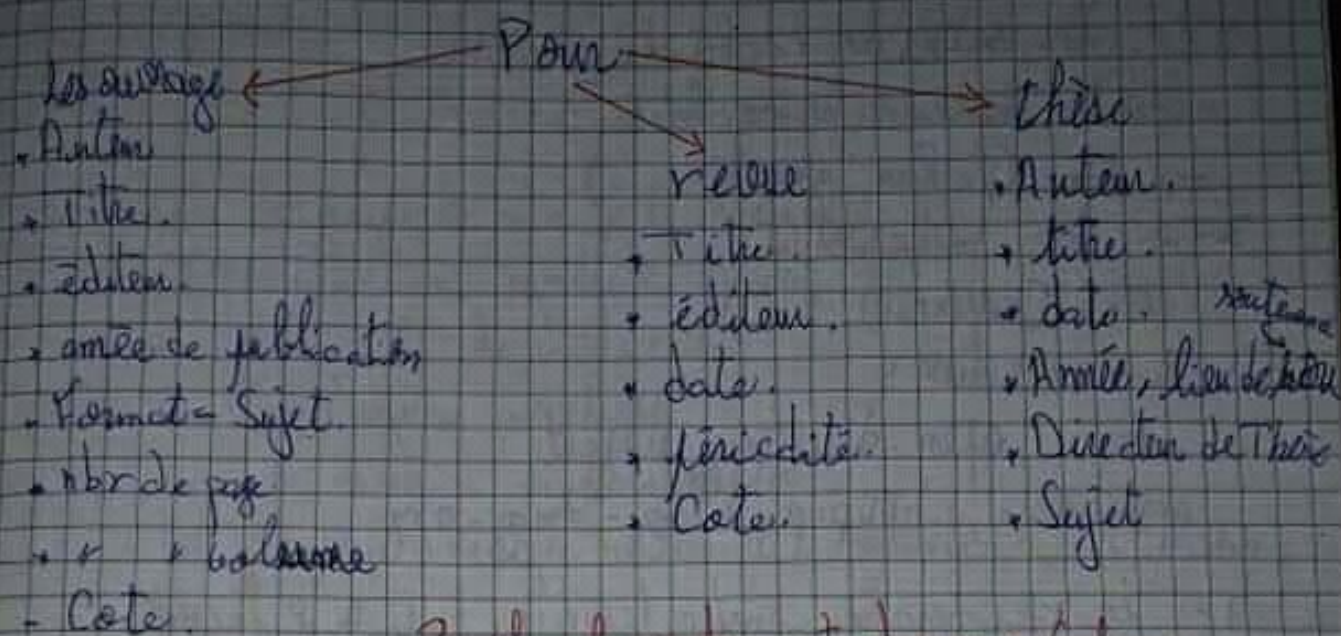 Pour
Les ouvrage
. Auteur
. Titre.
. éditeur.
. année de publication
. Format - Sujet.
. nbr de page
. " " volume
- Cote.
revue
. Titre.
. éditeur.
. date.
. périodité.
. Cote.
thèse
. Auteur.
. titre.
. date.
. Année, lieu de
. Directeur de Thèse
. Sujet